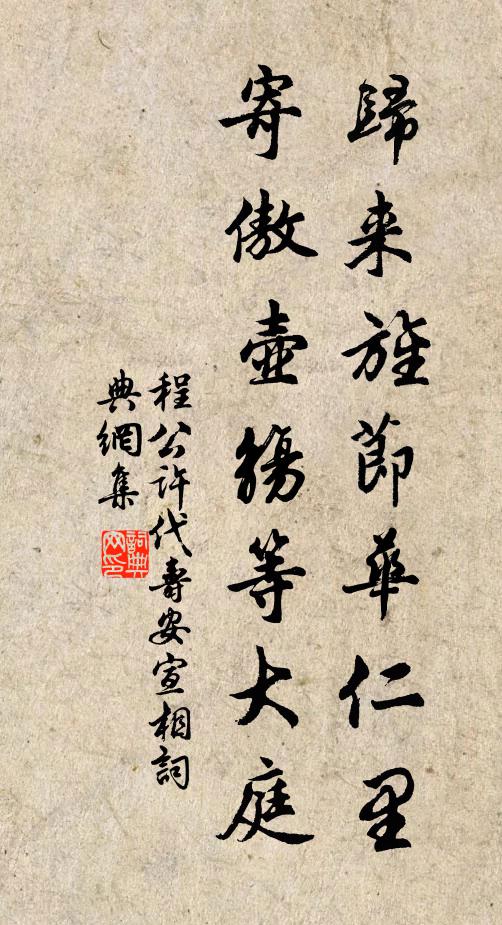 歸来旌節華仁里
寄傲壺觴等大庭
程公許代壽安宣相詞
典網集
詞典网印